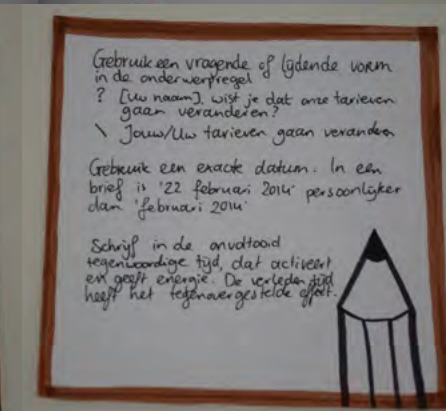 Gebruik een vragende of lijdende vorm
in de onderwerpregel
? [Uw naam], wist je dat onze tarieven
gaan veranderen?
\ Jouw/Uw tarieven gaan veranderen
Gebruik een exacte datum. In een
brief is '22 februari 2014' persoonlijker
dan 'februari 2014'
Schrijf in de onvoltooid
tegenwoordige tijd, dat activeert
en geeft energie. De verleden tijd
heeft het tegenovergestelde effect.